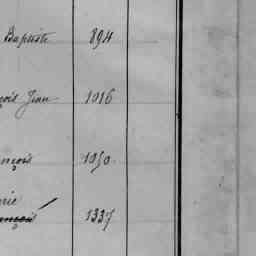 Baptiste 894
çois Jean 1016
nçois 1050
rie
ançois 1337